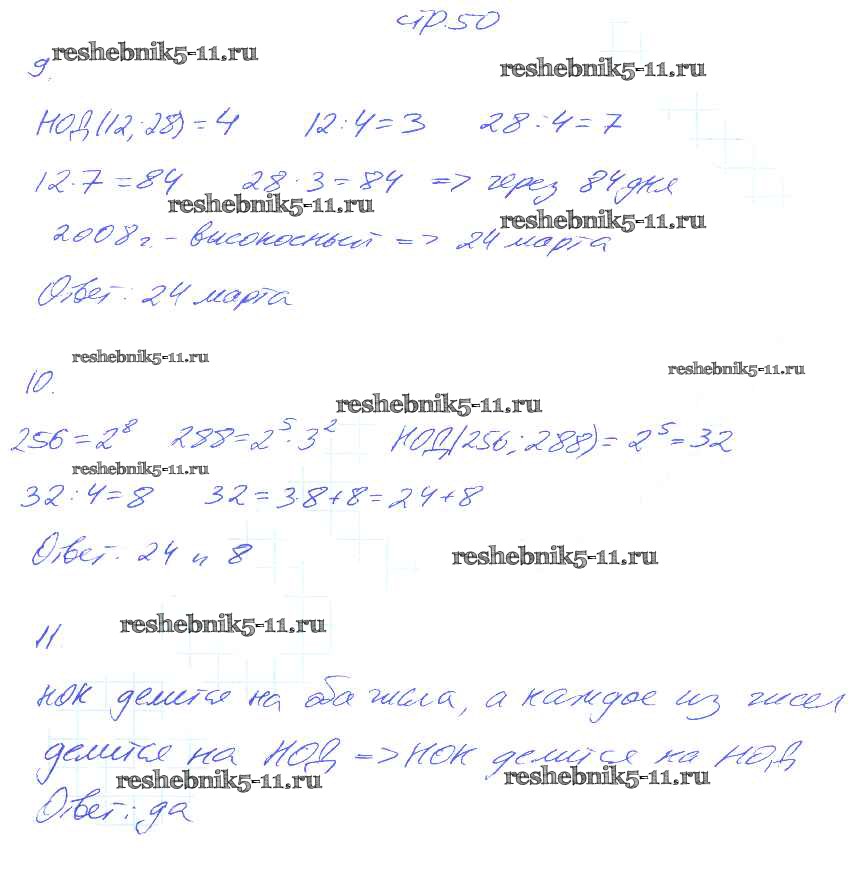 стр. 50
reshebnik5-11.ru
reshebnik5-11.ru
9.
НОД(12; 28) = 4 12 : 4 = 3 28 : 4 = 7
12 · 7 = 84 28 · 3 = 84 => через 84 дня
reshebnik5-11.ru
reshebnik5-11.ru
2008 г. - високосный => 24 марта
Ответ: 24 марта
reshebnik5-11.ru
reshebnik5-11.ru
10.
reshebnik5-11.ru
256 = 2⁸ 288 = 2⁵ · 3² НОД(256; 288) = 2⁵ = 32
reshebnik5-11.ru
32 : 4 = 8 32 = 3·8 + 8 = 24 + 8
Ответ. 24 и 8
reshebnik5-11.ru
reshebnik5-11.ru
11.
НОК делится на оба числа, а каждое из чисел
делится на НОД => НОК делится на НОД
reshebnik5-11.ru
reshebnik5-11.ru
Ответ: да